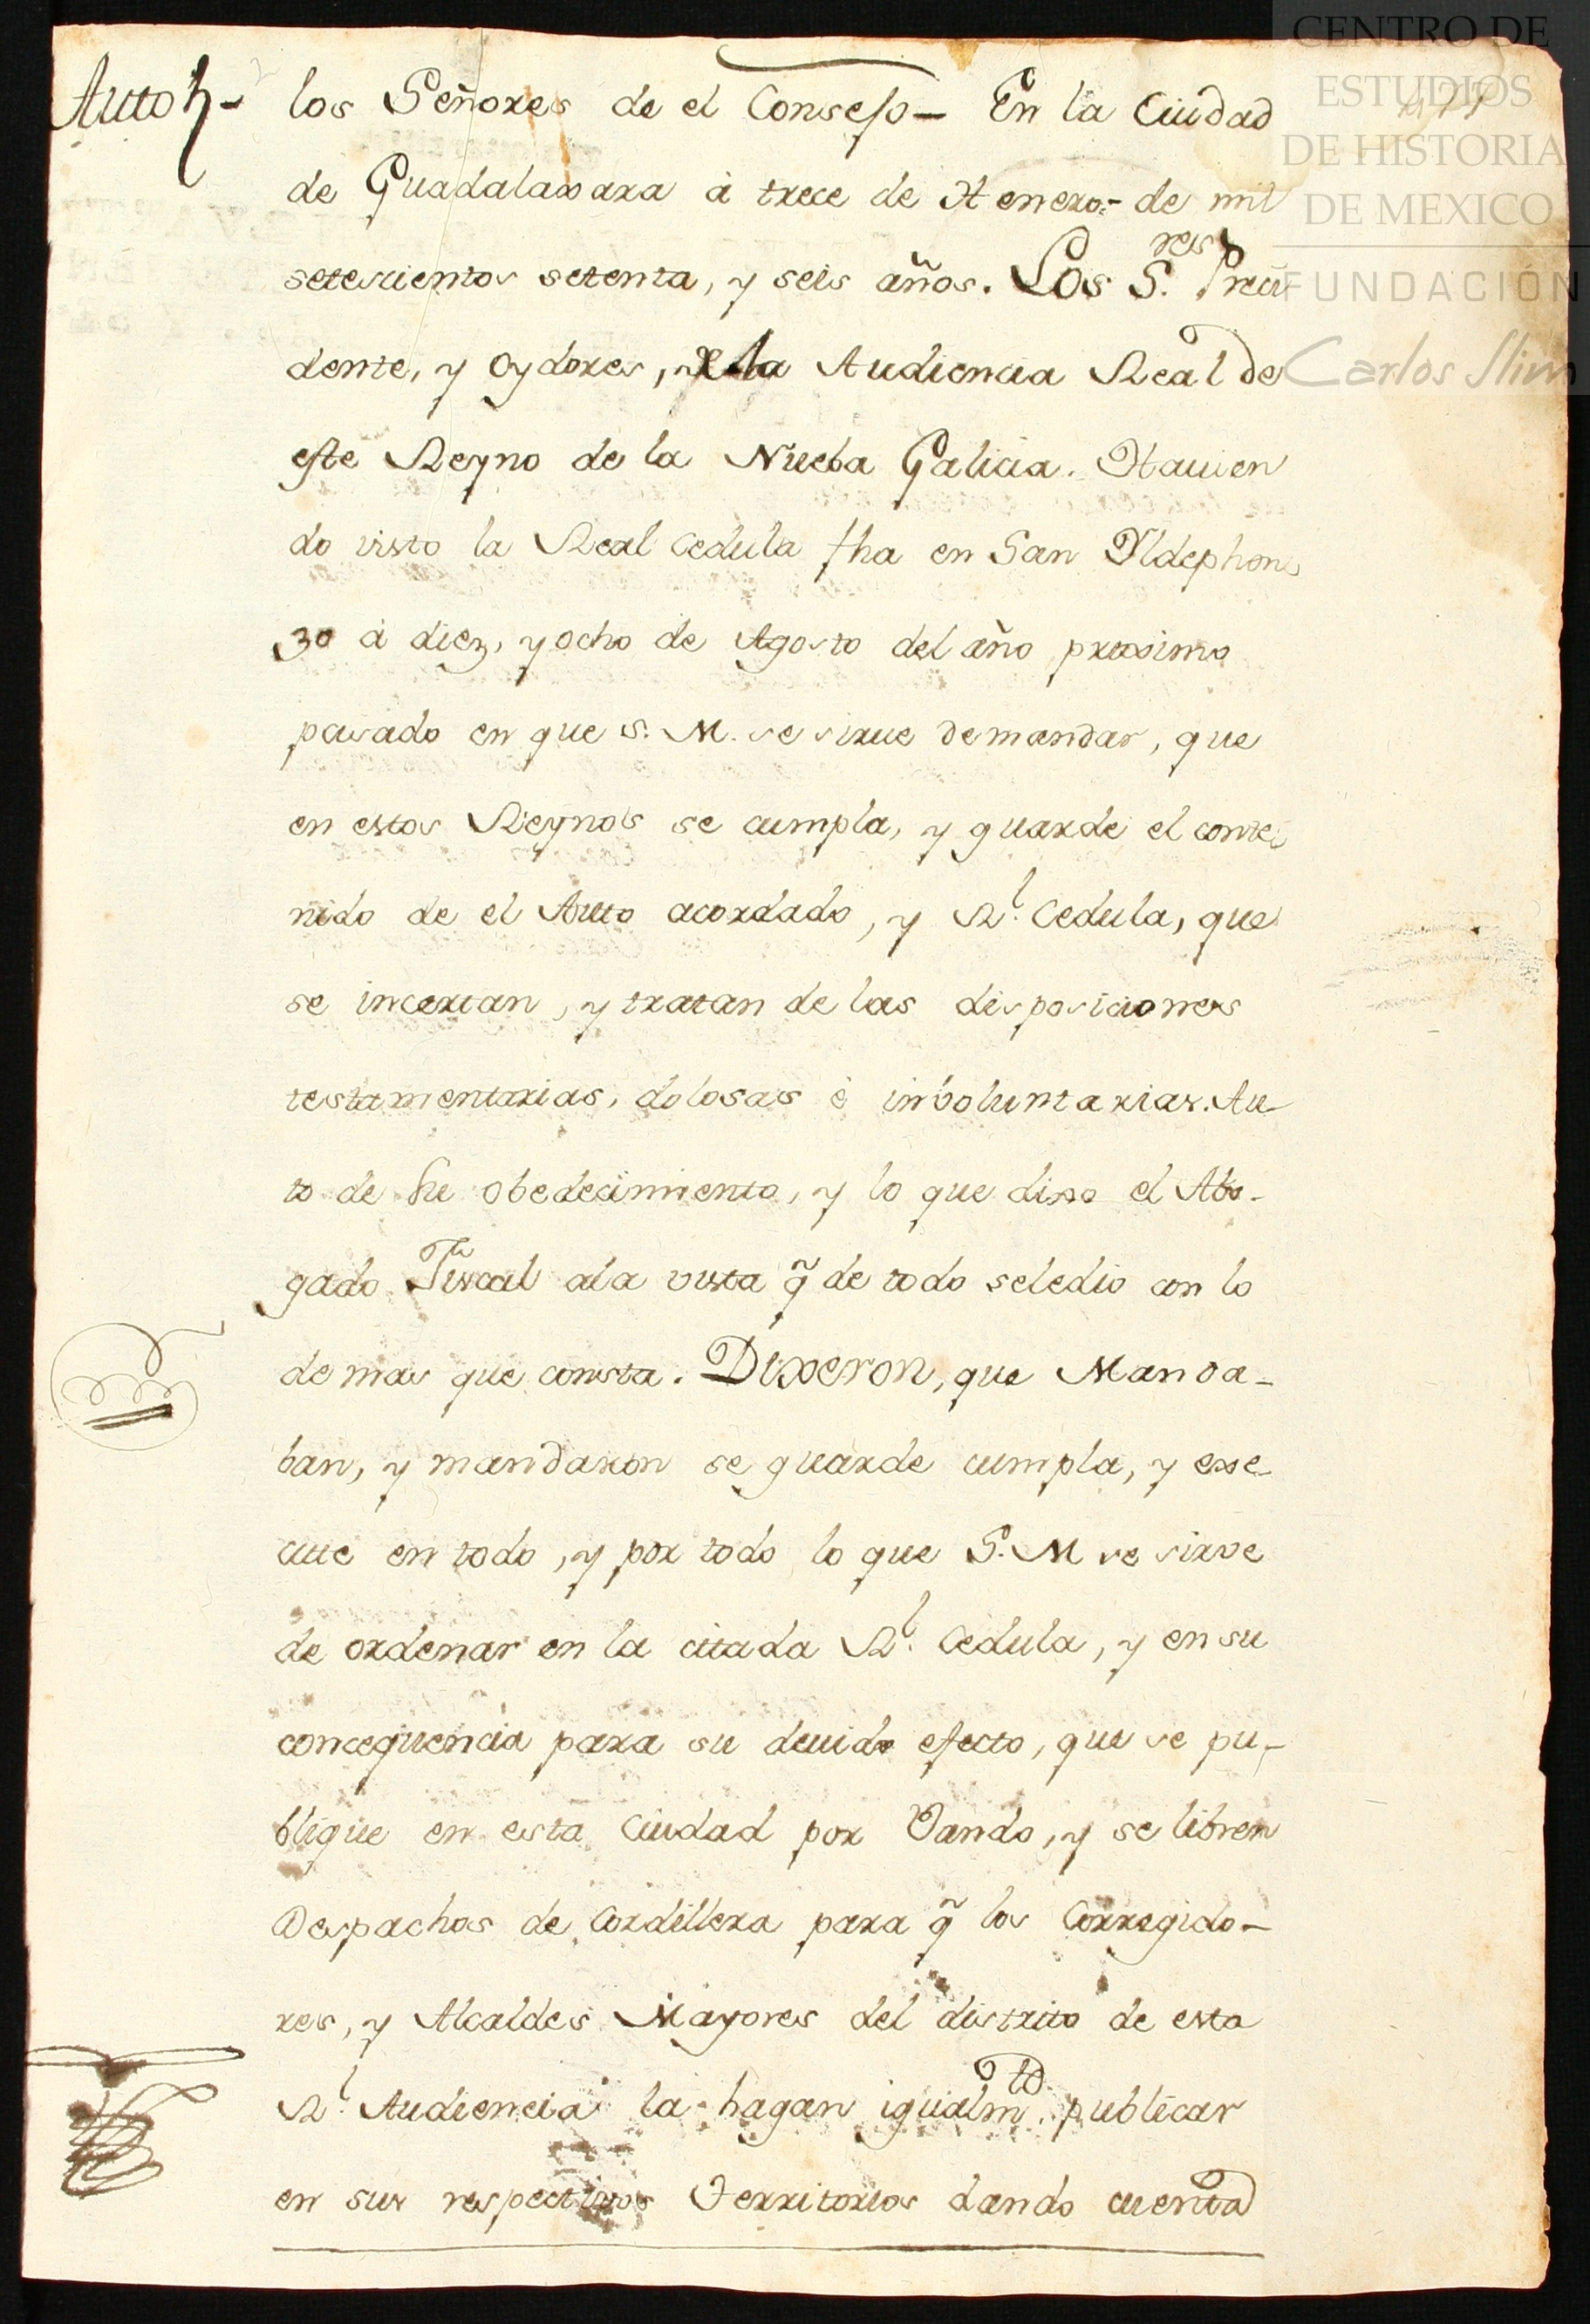 CENTRO DE
ESTUDIOS
DE HISTORIA
DE MEXICO
FUNDACIÓN
Carlos Slim
Auto
los Señores de el Consejo - En la Ciudad
de Guadalaxara à trece de Henero,- de mil
setescientos setenta, y seis años. Los S.res Presi
dente, y Oydores, de la Audiencia Real de
este Reyno de la Nueba Galicia. Havien
do visto la Real Cedula fha en San Yldephon
zo à diez, y ocho de Agosto del año proximo
pasado en que S. M. se sirve de mandar, que
en estos Reynos se cumpla, y guarde el conte
nido de el Auto acordado, y R.l Cedula, que
se incertan, y tratan de las disposiciones
testamentarias, dolosas è imboluntarias. Au-
to de su obedecimiento, y lo que dixo el Abo-
gado Fiscal ala vista q̃ de todo seledio con lo
demas que consta. Dixeron, que Manda-
ban, y mandaron se guarde cumpla, y exe-
cute en todo, y por todo lo que S. M se sirve
de ordenar en la citada R.l Cedula, y en su
concequencia para su devido efecto, que se pu-
blique en esta Ciudad por Vando, y se libren
Despachos de Cordillera para q̃ los Corregido-
res, y Alcaldes Mayores del distrito de esta
R.l Audiencia la hagan igualm.te publicar
en sus respectivos Territorios dando cuenta